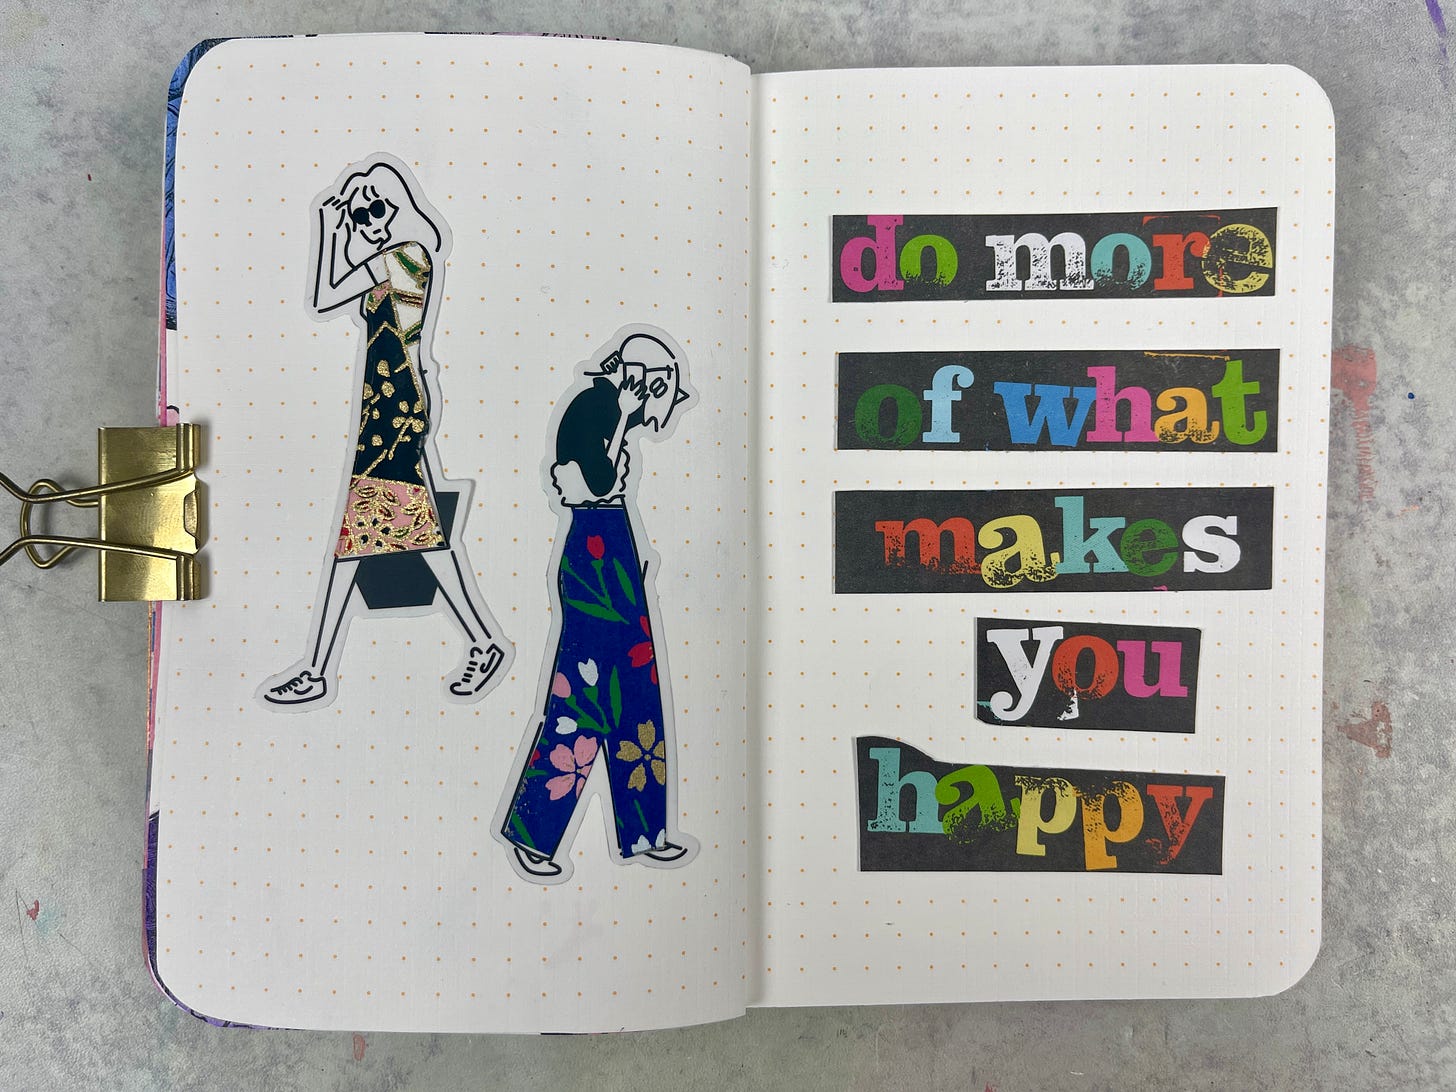 do more
of what
makes
you
happy